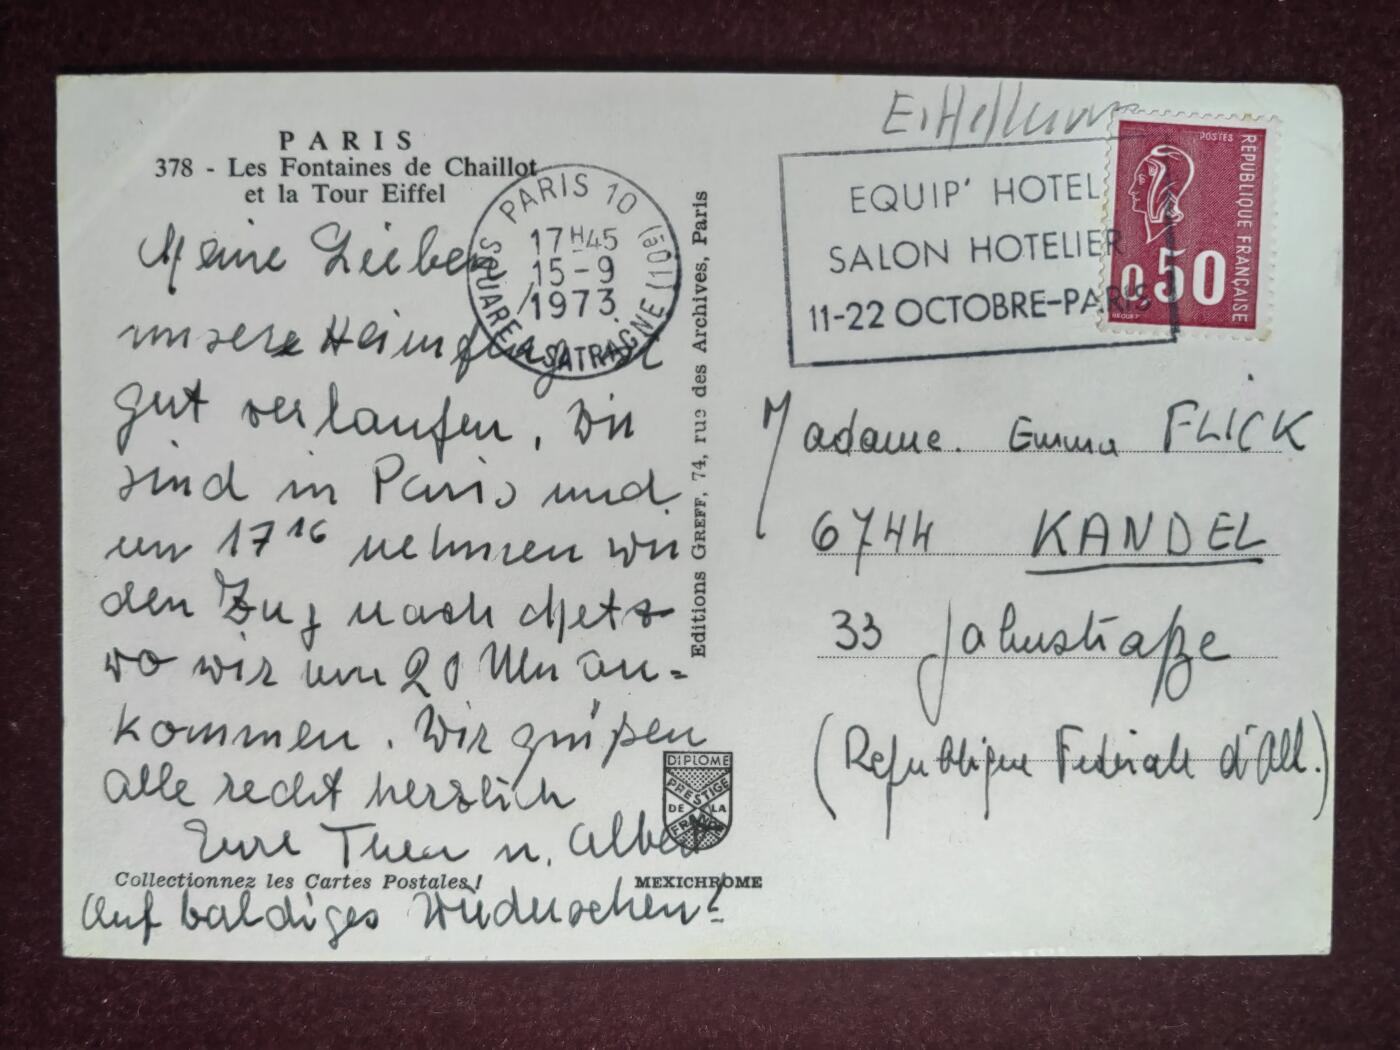 PARIS
378 - Les Fontaines de Chaillot
et la Tour Eiffel
Meine Lieben
unsere Heimflug
gut verlaufen, Wir
sind in Paris und
um 17 16 nehmen wir
den Zug nach Metz
wo wir um 20 Uhr an=
kommen. Wir grüßen
alle recht herzlich
Eure Thea u. Albert
Auf baldiges Wiedersehen!
Collectionnez les Cartes Postales!
MEXICHROME
DIPLOME
PRESTIGE
DE LA
FRANCE
Editions GREFF, 74, rue des Archives, Paris
PARIS 10 (501)
17H45
15-9
1973
SQUARE A SATRAGNE
EQUIP' HOTEL
SALON HOTELIER
11-22 OCTOBRE-PARIS
POSTES
REPUBLIQUE FRANÇAISE
0,50
BEQUET
Madame. Emma FLICK
6744 KANDEL
33 Jahnstraße
(Republique Federale d'All.)